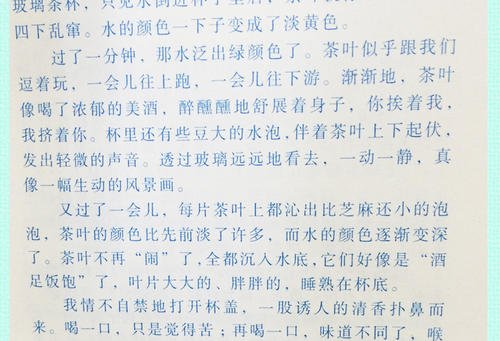 玻璃茶杯，只见水倒进杯子里后，茶叶
四下乱窜。水的颜色一下子变成了淡黄色。
过了一分钟，那水泛出绿颜色了。茶叶似乎跟我们
逗着玩，一会儿往上跑，一会儿往下游。渐渐地，茶叶
像喝了浓郁的美酒，醉醺醺地舒展着身子，你挨着我，
我挤着你。杯里还有些豆大的水泡，伴着茶叶上下起伏，
发出轻微的声音。透过玻璃远远地看去，一动一静，真
像一幅生动的风景画。
又过了一会儿，每片茶叶上都沁出比芝麻还小的泡
泡，茶叶的颜色比先前淡了许多，而水的颜色逐渐变深
了。茶叶不再“闹”了，全都沉入水底，它们好像是“酒
足饭饱”了，叶片大大的、胖胖的，睡熟在杯底。
我情不自禁地打开杯盖，一股诱人的清香扑鼻而
来。喝一口，只是觉得苦；再喝一口，味道不同了，喉